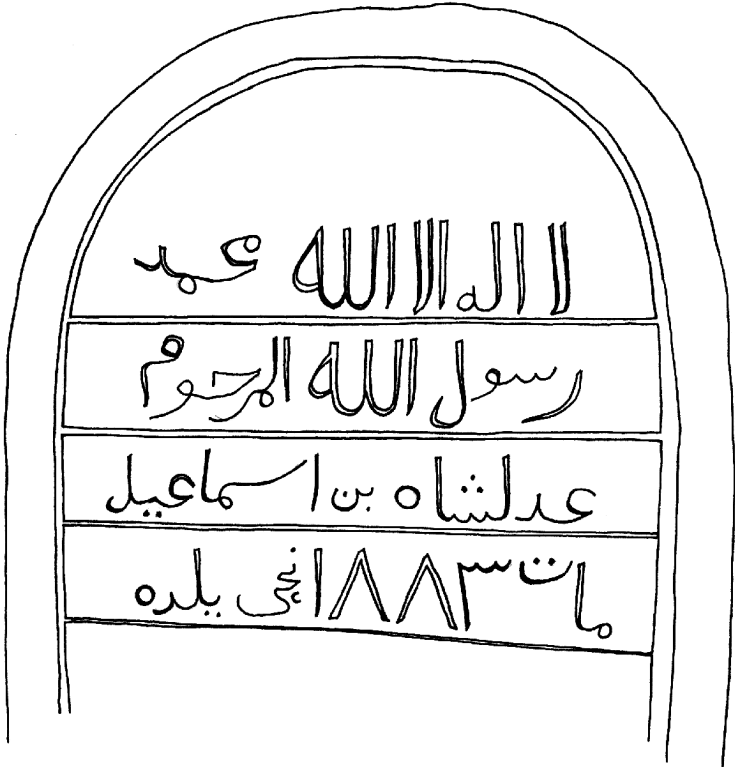 لا اله الا الله محمد
رسول الله المرحوم
عدلشاه بن اسماعيل
مات ١٨٨٣ نچى يلده